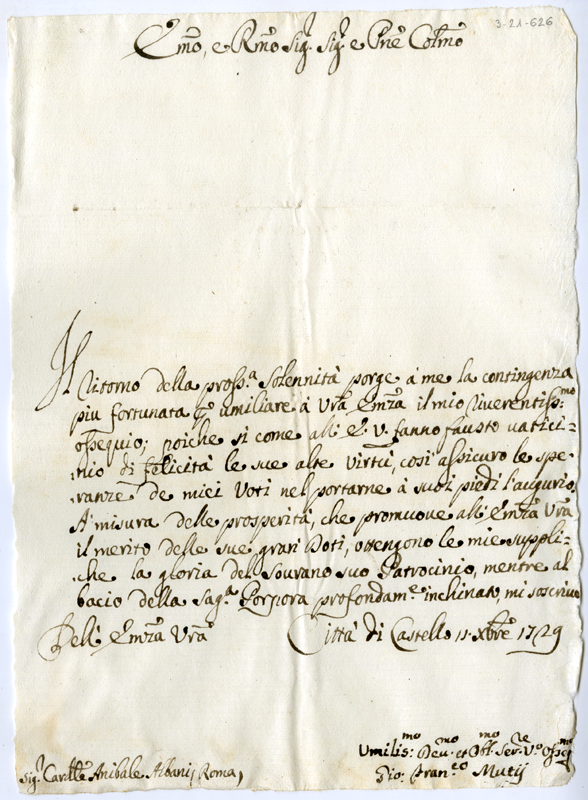 3-21-626
Emo, e Rmo Sigr. Sigr. e Pne Colmo
Il ritorno della pross.a Solennità porge à me la contingenza
più fortunata p umiliare à Vrã Emza il mio riverentiss:mo
ossequio; poiche si come all' E. V. fanno fausto vatici-
nio di felicità le sue alte virtù, così assicuro le spe-
ranze de miei Voti nel portarne à suoi piedi l'augurio.
A' misura delle prosperità, che promuove all' Emza Vrã
il merito delle sue gran Doti, ottengono le mie suppli-
che la gloria del Sovrano suo Patrocinio, mentre al
bacio della Sag.a Porpora profondam.e inchinato, mi soscrivo
Dell' Emza Vrã Città di Castello 11. Xbre 1729
Umilis:mo Dev:mo et Obl:mo Ser.re Vo Osseq.mo
Gio: Fran.co Mutij
Sigr. Cardle Anibale Albani, Roma,